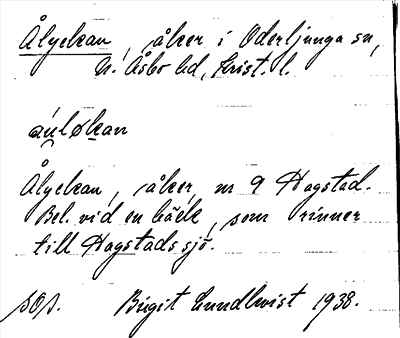 Ålyckan, åker i Oderljunga sn,
N. Åsbo hd, Krist. l.
Ålyckan, åker, nr 9 Hagstad.
Bel. vid en bäck, som rinner
till Hagstads sjö.
SOP. Birgit Lundkvist 1938.